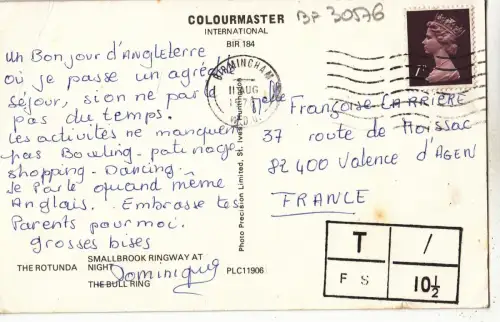 COLOURMASTER
INTERNATIONAL
BIR 184
BF 30576
un Bonjour d'Angleterre
où je passe un agréable
séjour, si on ne parle
pas du temps.
Les activités ne manquent
pas Bowling - patinage
shopping - Dancing.
Je Parle quand même
Anglais. Embrasse tes
Parents pour moi.
grosses bises
Dominique
THE ROTUNDA
SMALLBROOK RINGWAY AT
NIGHT
THE BULL RING
PLC11906
Photo Precision Limited, St. Ives, Huntingdon
BIRMINGHAM
11 AUG
Melle Françoise CARRIERE
37 route de Moissac
82400 Valence d'AGEN
FRANCE
T /
F S 10½